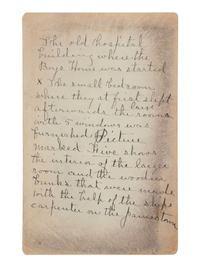 The old hospital
building where the
Boys Home was started
x The small bedroom
where they at first slept
afterwards the large room
with 5 windows was
furnished Picture
marked Five shows
the interior of the large
room and the wooden
bunks that were made
with the help of the ships
carpenter on the Jamestown